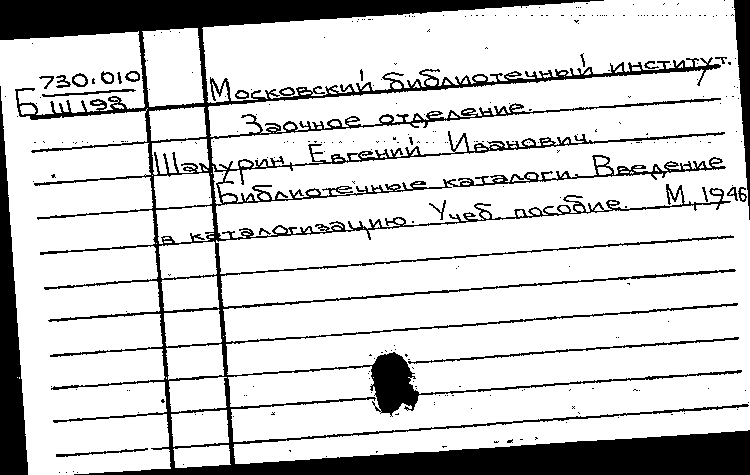 Б 730.010
Ш 198
Московский библиотечный институт.
Заочное отделение.
Шамурин, Евгений Иванович.
Библиотечные каталоги. Введение
в каталогизацию. Учеб. пособие. М., 1946